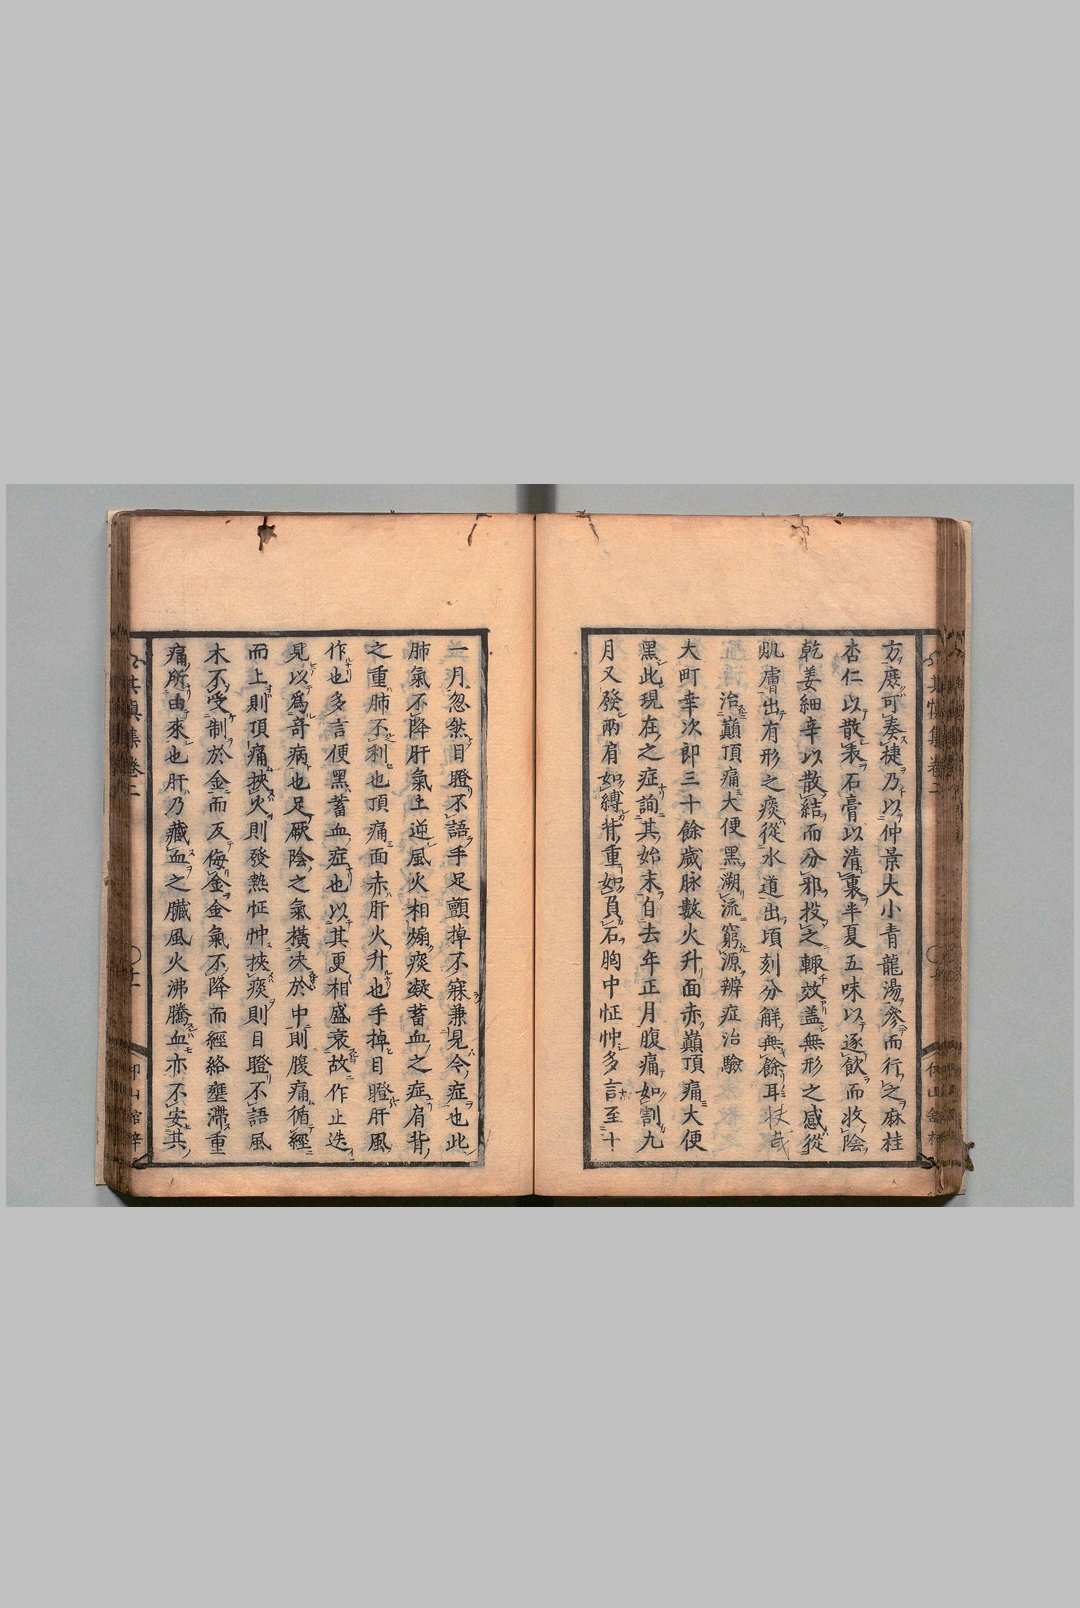 方庶可奏捷乃以仲景大小青龍湯參而行之麻桂
杏仁以散表石膏以清裏半夏五味以逐飲而收陰
乾姜細辛以散結而分邪投之輙效蓋無形之感從
肌膚出有形之痰從水道出頃刻分解無餘耳
治巔頂痛大便黑溯流窮源辨症治驗
大町幸次郎三十餘歲脉數火升面赤巔頂痛大便
黑此現在之症詢其始末自去年正月腹痛如割九
月又發兩肩如縛背重如負石胸中怔忡多言至十
一月忽然目瞪不語手足顫掉不寐兼見今症也此
肺氣不降肝氣上逆風火相煽痰凝蓄血之症肩背
之重肺不利也頂痛面赤肝火升也手掉目瞪肝風
作也多言便黑蓄血症也以其更相盛衰故作止迭
見以爲奇病也足厥陰之氣橫决於中則腹痛循經
而上則頂痛挾火則發熱怔忡挾痰則目瞪不語風
木不受制於金而反侮金金氣不降而經絡壅滯重
痛所由來也肝乃藏血之臟風火沸騰血亦不安其
慎集卷二